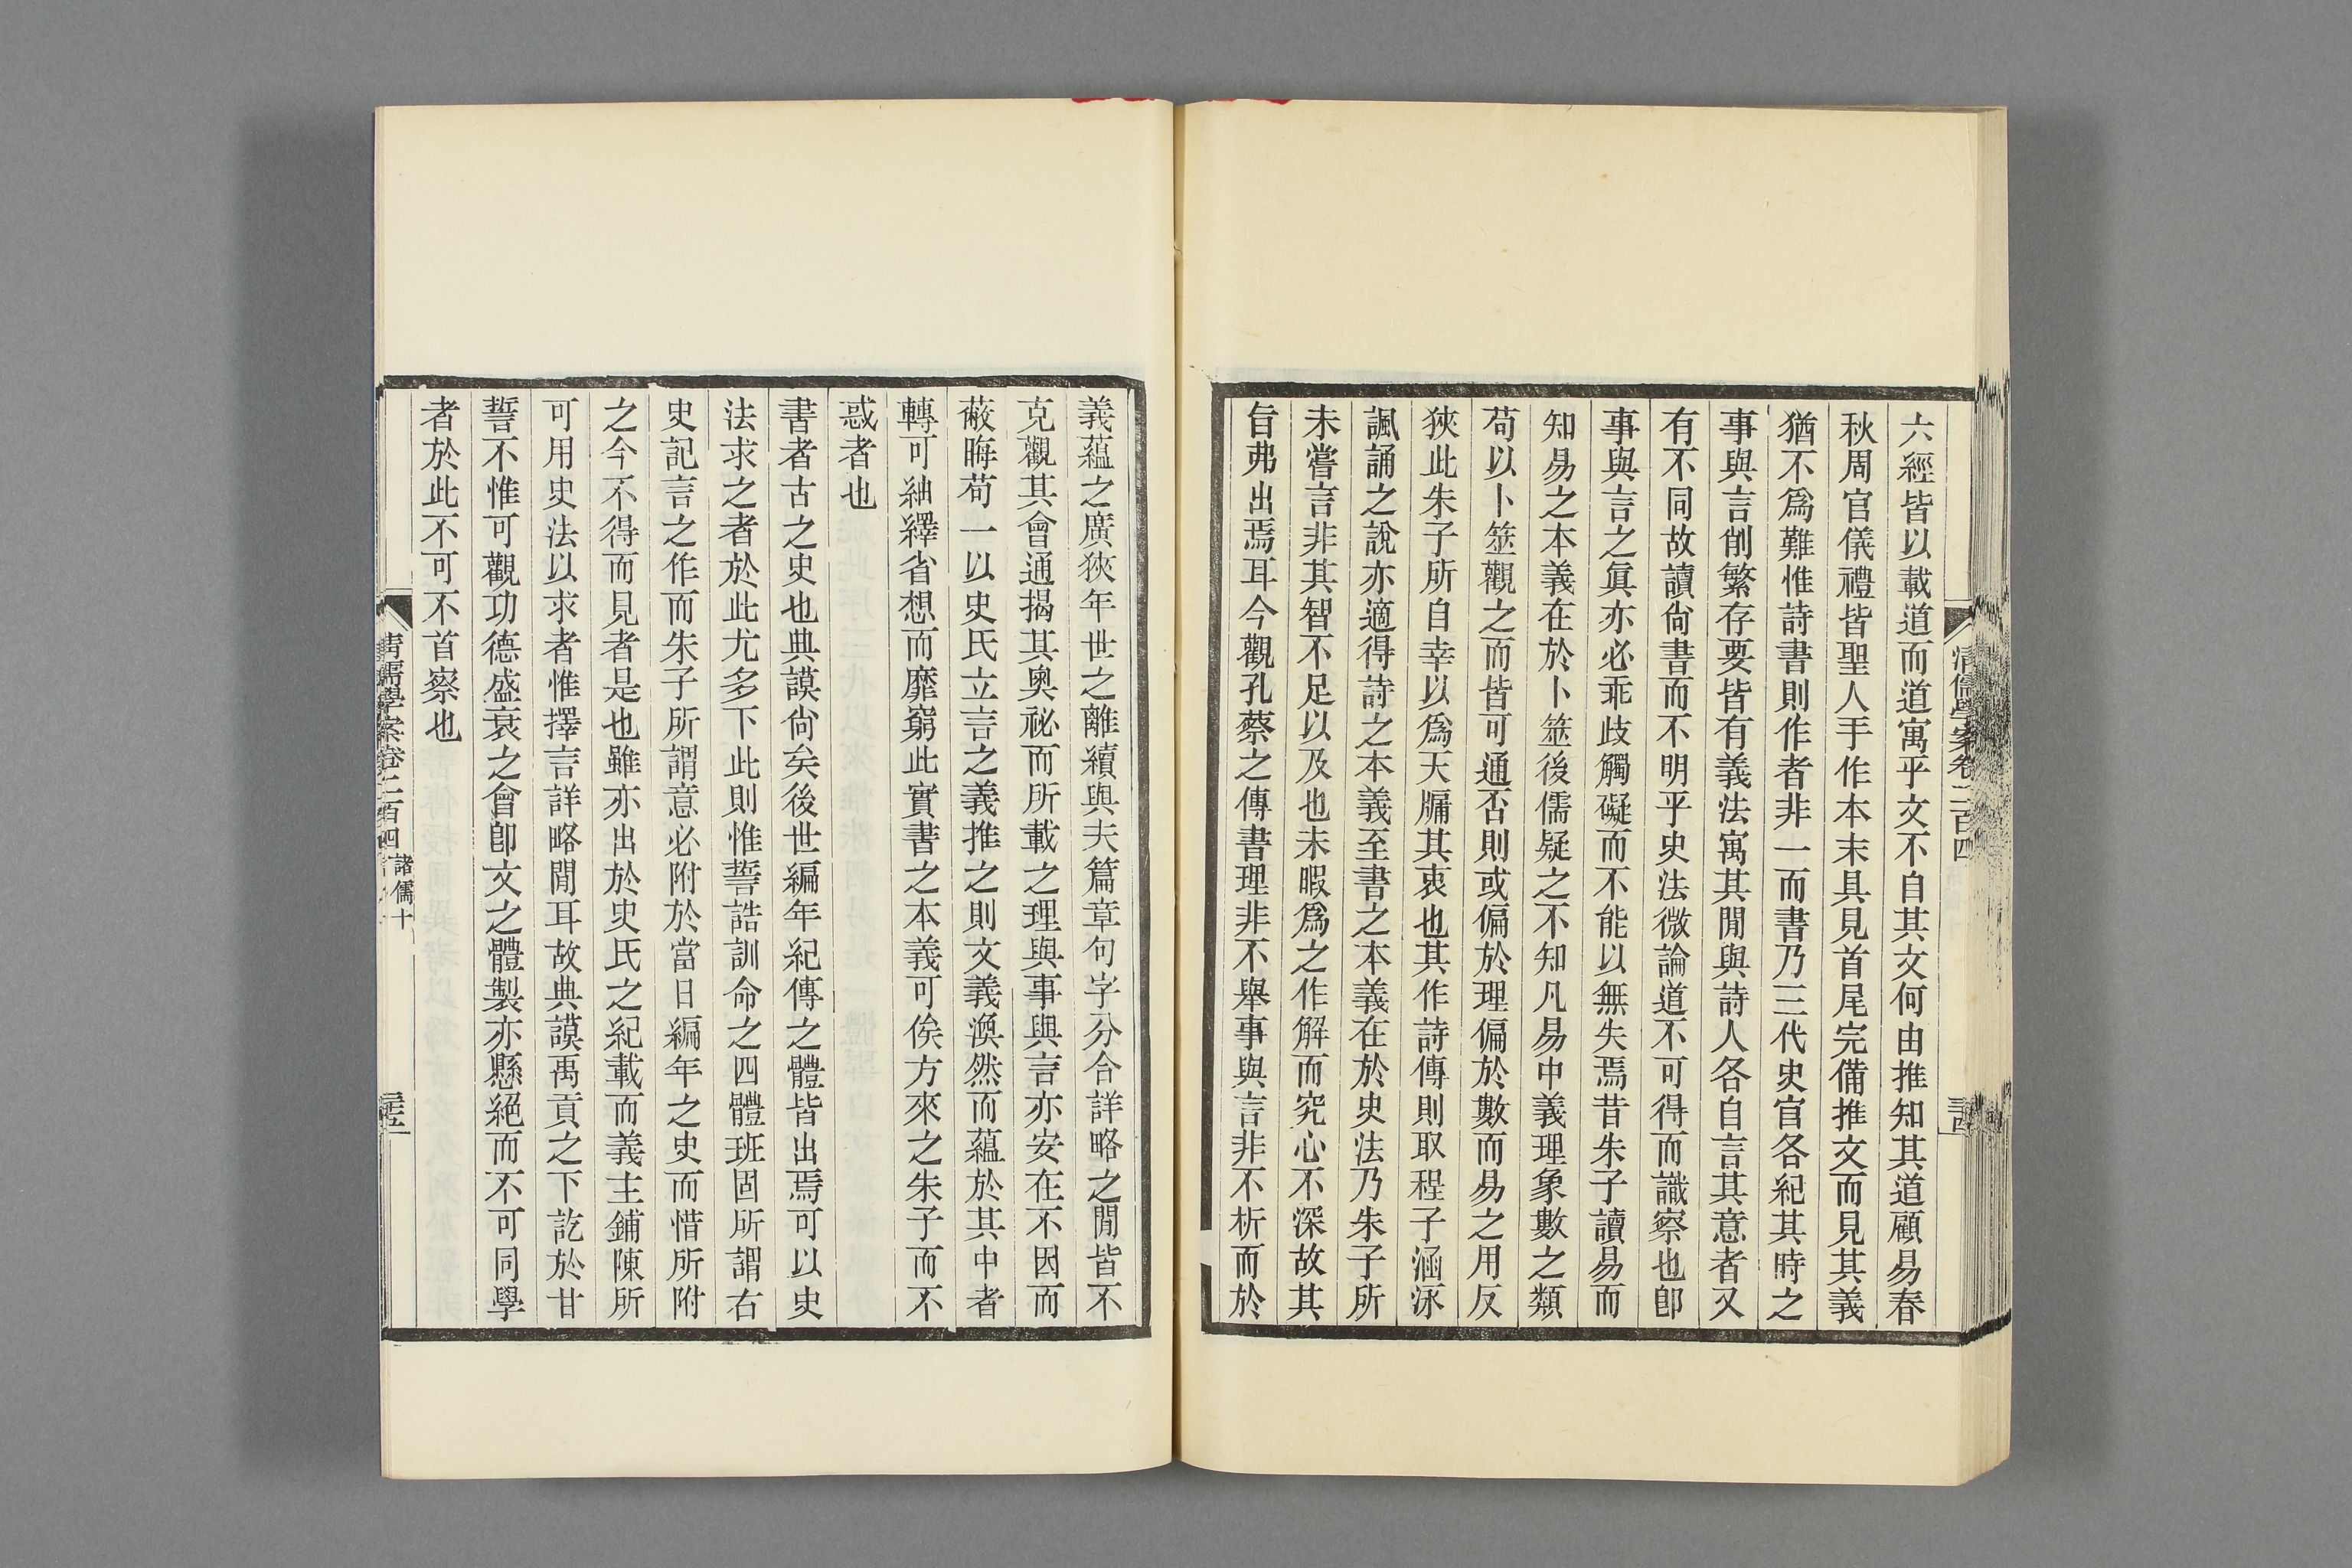 六經皆以載道而道寓乎文不自其文何由推知其道顧易春
秋周官儀禮皆聖人手作本末具見首尾完備推文而見其義
猶不爲難惟詩書則作者非一而書乃三代史官各紀其時之
事與言削繁存要皆有義法寓其閒與詩人各自言其意者又
有不同故讀尙書而不明乎史法微論道不可得而識察也卽
事與言之眞亦必乖歧觸礙而不能以無失焉昔朱子讀易而
知易之本義在於卜筮後儒疑之不知凡易中義理象數之類
苟以卜筮觀之而皆可通否則或偏於理偏於數而易之用反
狹此朱子所自幸以爲天牖其衷也其作詩傳則取程子涵泳
諷誦之說亦適得詩之本義至書之本義在於史法乃朱子所
未嘗言非其智不足以及也未暇爲之作解而究心不深故其
旨弗出焉耳今觀孔蔡之傳書理非不舉事與言非不析而於
清儒學案卷二百四
義蘊之廣狹年世之離續與夫篇章句字分合詳略之閒皆不
克觀其會通揭其奧祕而所載之理與事與言亦安在不因而
蔽晦苟一以史氏立言之義推之則文義渙然而蘊於其中者
轉可紬繹省想而靡窮此實書之本義可俟方來之朱子而不
惑者也
書者古之史也典謨尙矣後世編年紀傳之體皆出焉可以史
法求之者於此尤多下此則惟誓誥訓命之四體班固所謂右
史記言之作而朱子所謂意必附於當日編年之史而惜所附
之今不得而見者是也雖亦出於史氏之紀載而義主鋪陳所
可用史法以求者惟擇言詳略閒耳故典謨禹貢之下訖於甘
誓不惟可觀功德盛衰之會卽文之體製亦懸絕而不可同學
者於此不可不首察也
清儒學案卷二百四 諸儒十